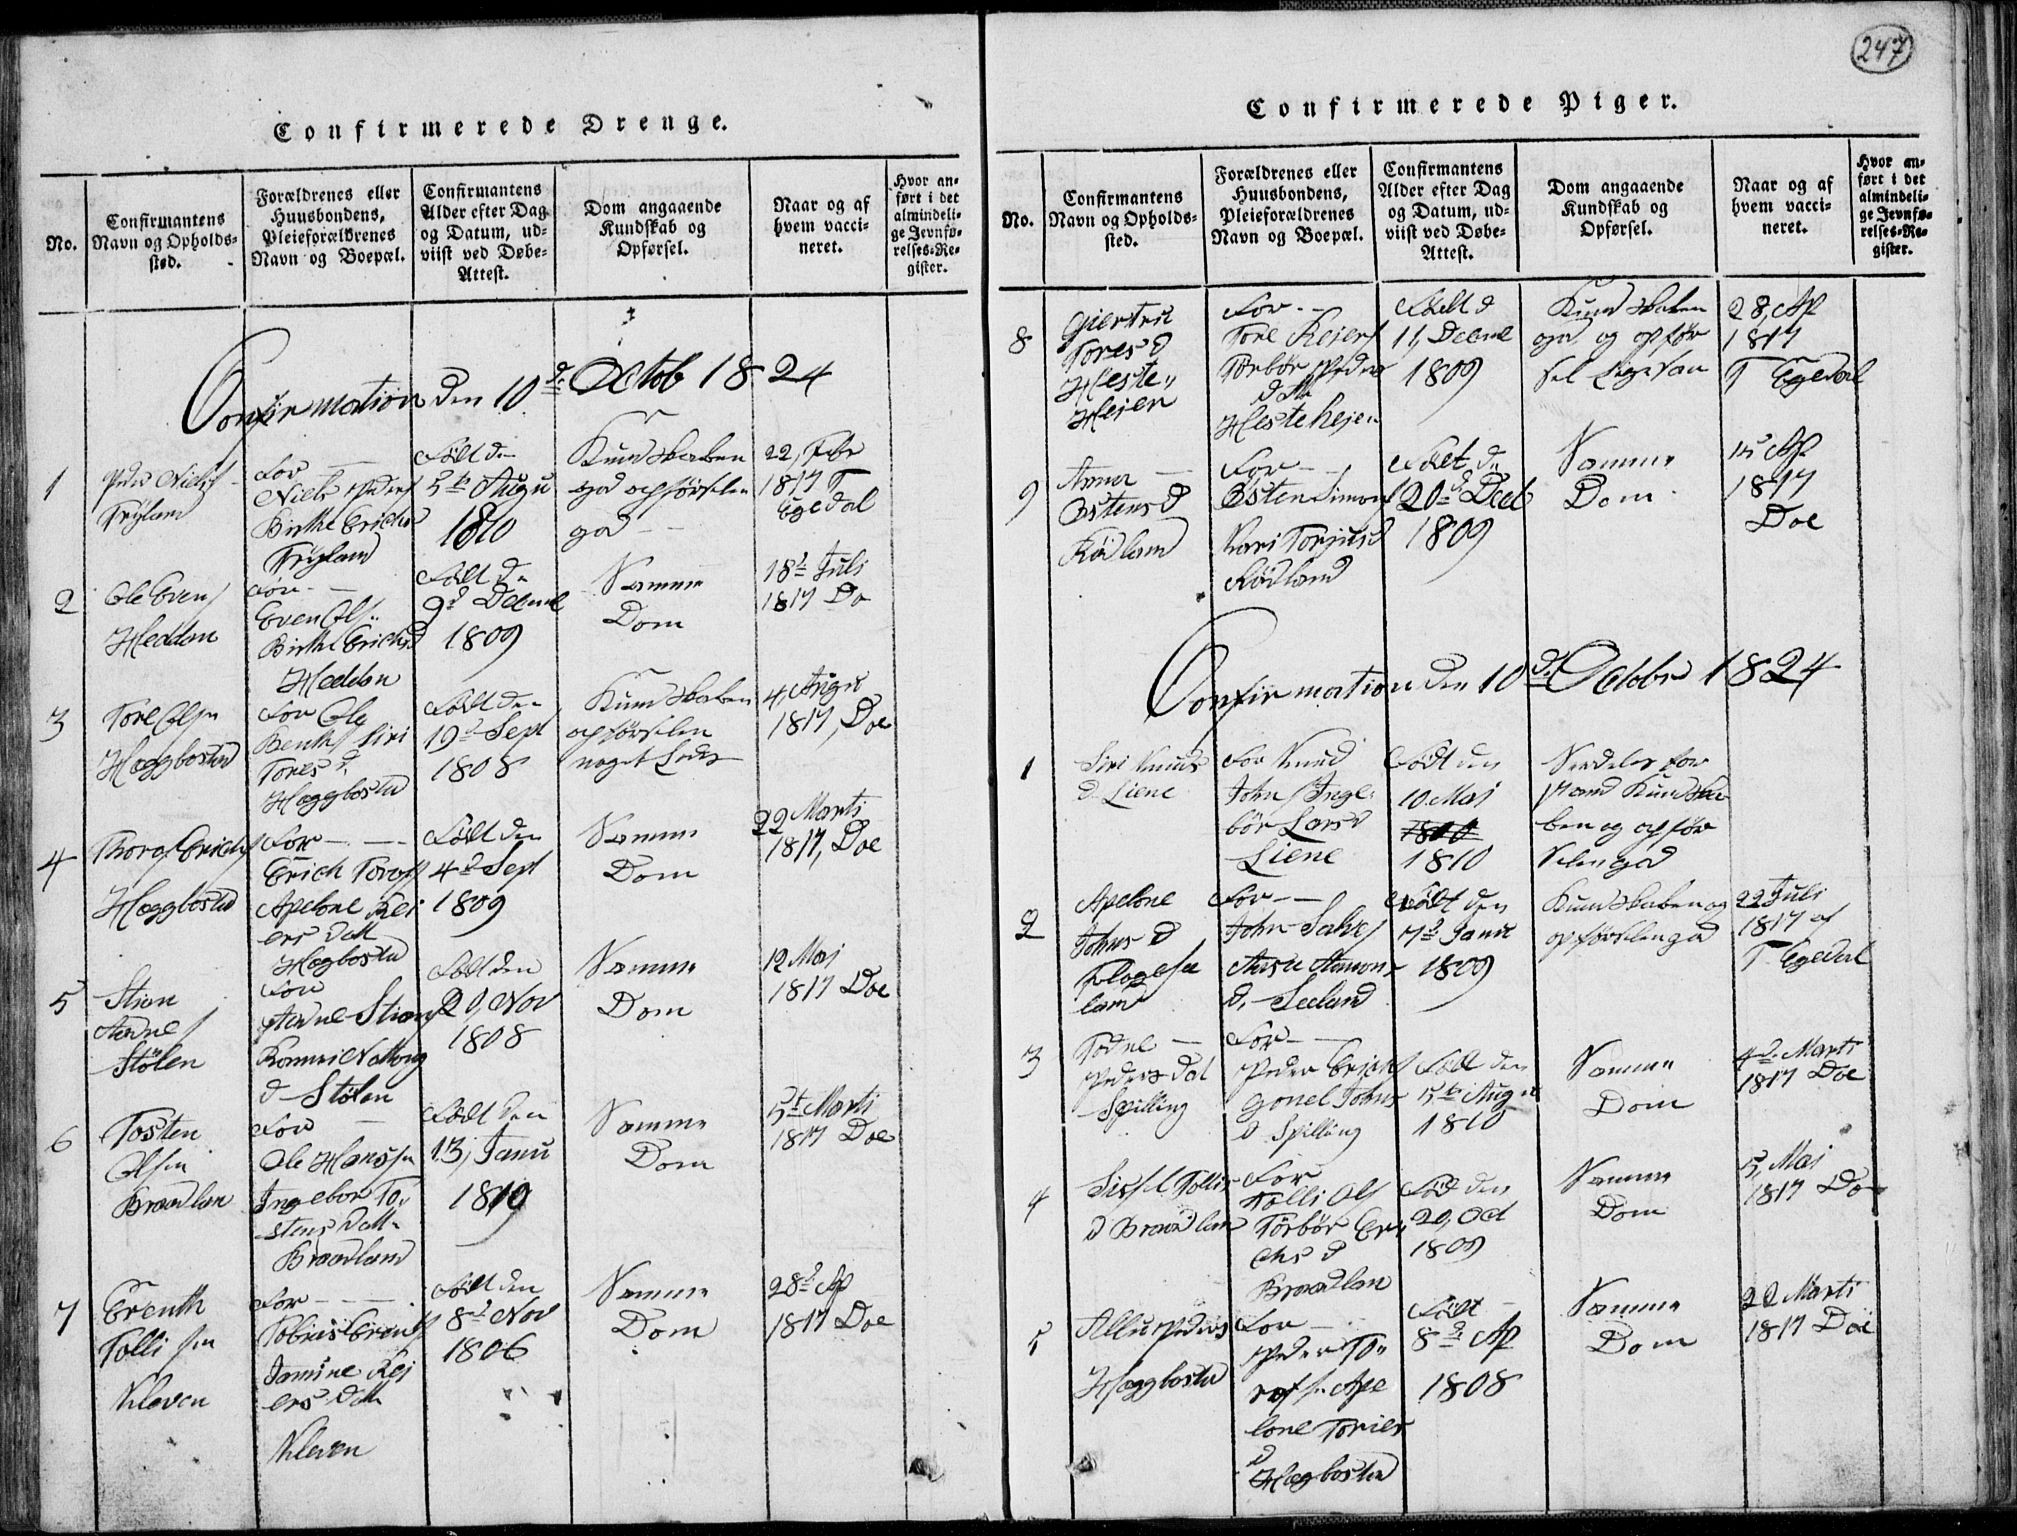 247
Confirmerede Drenge.
No.
Confirmantens
Navn og Opholds-
sted.
Forældrenes eller
Huusbondens,
Pleieforældrenes
Navn og Boepæl.
Confirmantens
Alder efter Dag
og Datum, ud-
viist ved Døbe-
Attest.
Dom angaaende
Kundskab og
Opførsel.
Naar og af
hvem vacci-
neret.
Hvor an-
ført i det
almindeli-
ge Jevnfø-
relses-Re-
gister.
Confirmation den 10d Octob 1824
1
Peder Niels
Fryland
For
Niels Peders
Birthe Erichsd
Fryland
Født d
5te Augu
1810
Kundskaben
god opførselen
god
22, Febr
1817 T
Egedal
2
Ole Evens
Heddan
For
Even Ols
Birthe Erichsd
Heddan
Født d
9d Decme
1809
Samme
Dom
18d Juli
1817 Do
3
Tore Olsn
Hæggbostad
For Ole
Bents Siri
Tores d.
Hæggbostad
Født den
19d Sept
1808
Kundskaben
opførselen
noget
4, Augu
1817, Doe
4
Thorof Erichs
Hæggbostad
For
Erich Torofs
Apelone Rei
ers Datt
Hægbostad
Født den
4d Sept
1809
Samme
Dom
22 Marti
1817, Doe
5
Stian
Aadnes
Stölen
For
Aadne Stians
d Stölen
Født den
20, Nov
1808
Samme
Dom
12 Maj
1817 Doe
6
Tosten
Olsen
Braadlan
For
Ole Hanssen
Ingebor To-
stens Datt
Braadland
Født den
13, Janu
1810
Samme
Dom
5t Marti
1817 Doe
7
Erenth
Tollisen
Kleven
For
Tobias Erents
Jamine Rei
ers Datt
Kleven
Født den
8d Nov
1806
Samme
Dom
28d Ap
1817 Doe
Confirmerede Piger.
No.
Confirmantens
Navn og Opholds-
sted.
Forældrenes eller
Huusbondens,
Pleieforældrenes
Navn og Boepæl.
Confirmantens
Alder efter Dag
og Datum, ud-
viist ved Døbe-
Attest.
Dom angaaende
Kundskab og
Opførsel.
Naar og af
hvem vacci-
neret.
Hvor an-
ført i det
almindeli-
ge Jevnfø-
relses-Re-
gister.
8
Giertru
Tores d
Heste-
Heien
For
Tore Reiers
Torbor Peders
Datt
Hesteheien
Født d
11, Decme
1809
Kundskaben
god og opfør
sel ligesaa
28, Ap
1817
T Egedal
9
Anna
Ostens d
Rødland
For
Østen Simons
Kari Torjusd
Rødland
Født d
20d Decb
1809
Samme
Dom
15 Ap
1817
Doe
Confirmation den 10d Octobr 1824
1
Siri Knuds
d Liene
For Knud
Johns Inge-
bör Larsd
Liene
Født den
10 Maj
1810
Serdeles for
stand Kundska
ben og opför
selen god
2
Apelone
Johns d
For
John Salves
Aase Aamons
d. Seeland
Født den
7d Janu
1809
Kundskaben og
opførselen god
22 Juli
1817 af
T Egedal
3
Todne
Peders Dat
Spilling
For
Peder Erichs
Gonel Johns
d Spilling
Født den
5te Augu
1810
Samme
Dom
4d. Marti
1817 Doe
4
Sissel Tollis
d Braadlan
For
Tolli Ols
Törbör Eri
chs d
Braadlan
Född den
20, Oct
1809
Samme
Dom
5, Maj
1817 Do
5
Peders
Hæggbostad
For
Peder To-
rofsn Ape
lone Tories
d
Hægbostad
Født
8d Ap
1808
Samme
Dom
22 Marti
1817 Doe